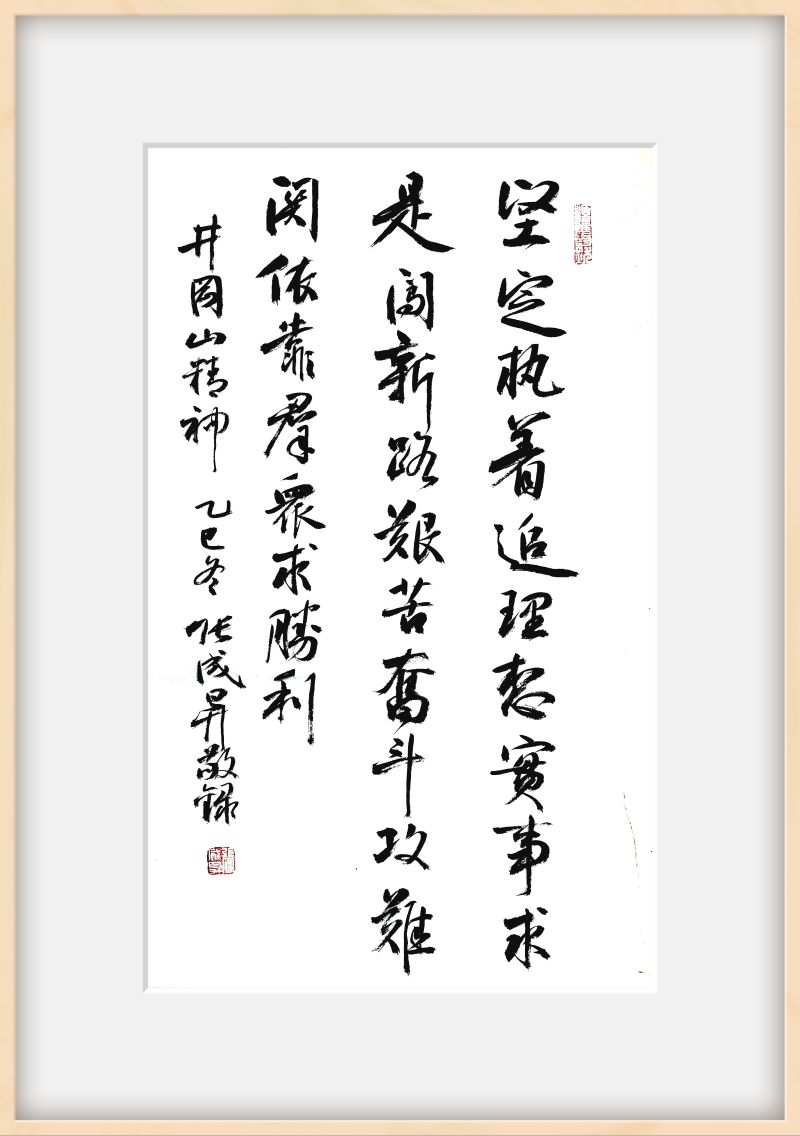 坚定执着追理想實事求
是闯新路艱苦奮斗攻難
関依靠羣衆求勝利
井冈山精神 乙巳冬 张成昇敬録